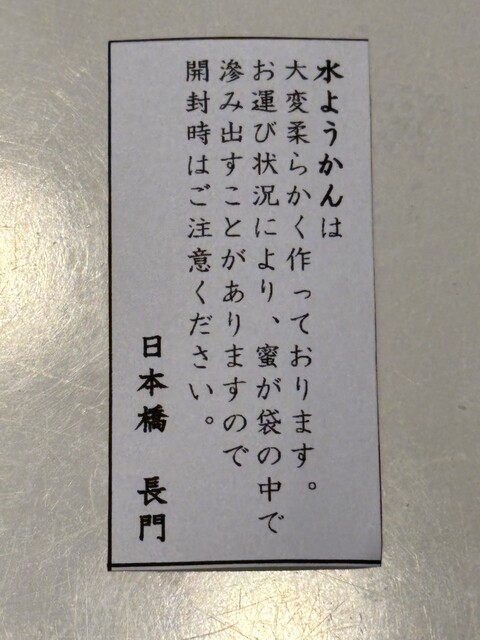 水ようかんは
大変柔らかく作っております。
お運び状況により、蜜が袋の中で
滲み出すことがありますので
開封時はご注意ください。
日本橋　長門